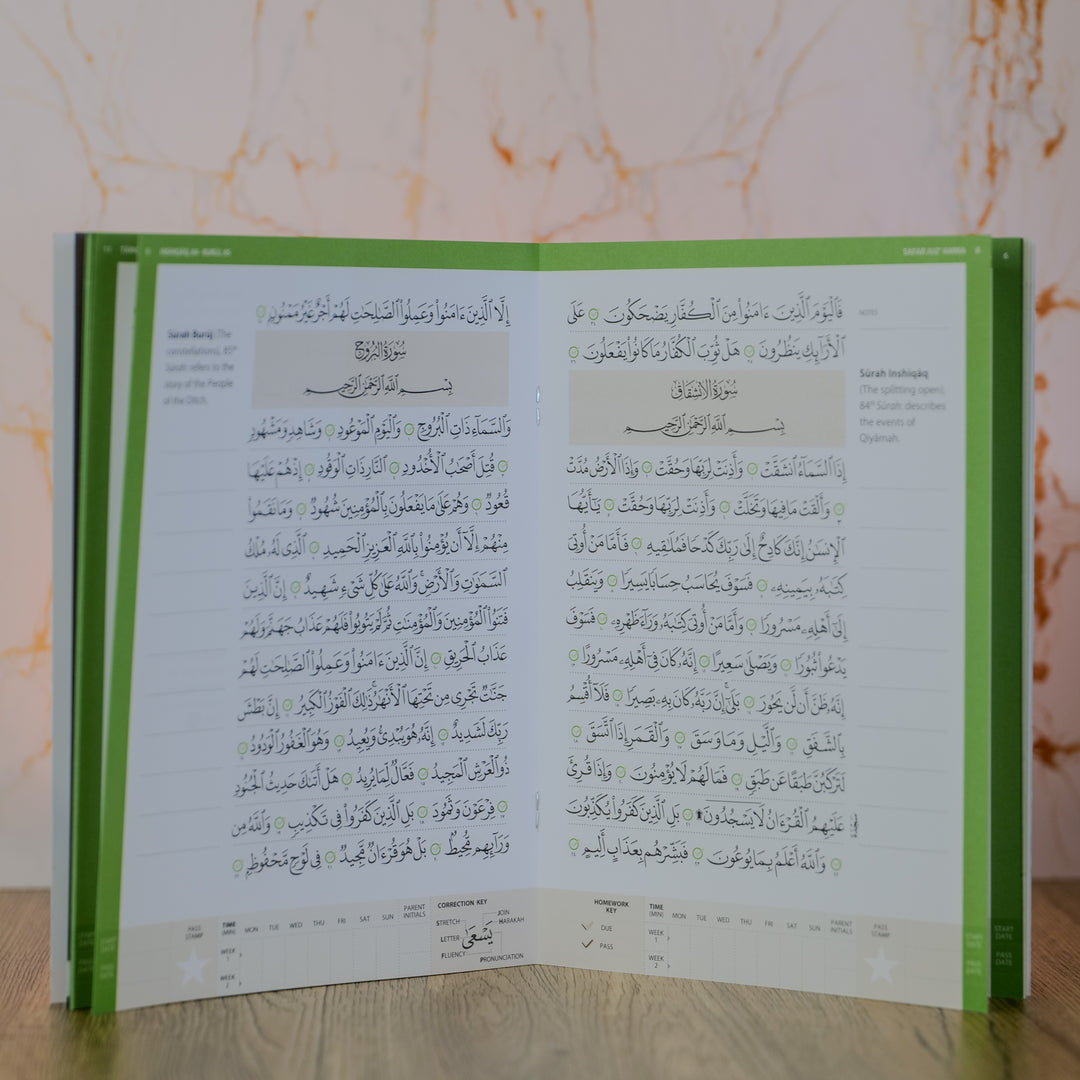 فَٱلْيَوْمَ ٱلَّذِينَ ءَامَنُوا۟ مِنَ ٱلْكُفَّارِ يَضْحَكُونَ ۝ عَلَى
ٱلْأَرَآئِكِ يَنظُرُونَ ۝ هَلْ ثُوِّبَ ٱلْكُفَّارُ مَا كَانُوا۟ يَفْعَلُونَ ۝
سُورَةُ الِانْشِقَاقِ
بِسْمِ ٱللَّهِ ٱلرَّحْمَٰنِ ٱلرَّحِيمِ
إِذَا ٱلسَّمَآءُ ٱنشَقَّتْ ۝ وَأَذِنَتْ لِرَبِّهَا وَحُقَّتْ ۝ وَإِذَا ٱلْأَرْضُ مُدَّتْ
۝ وَأَلْقَتْ مَا فِيهَا وَتَخَلَّتْ ۝ وَأَذِنَتْ لِرَبِّهَا وَحُقَّتْ ۝ يَٰٓأَيُّهَا
ٱلْإِنسَٰنُ إِنَّكَ كَادِحٌ إِلَىٰ رَبِّكَ كَدْحًا فَمُلَٰقِيهِ ۝ فَأَمَّا مَنْ أُوتِىَ
كِتَٰبَهُۥ بِيَمِينِهِۦ ۝ فَسَوْفَ يُحَاسَبُ حِسَابًا يَسِيرًا ۝ وَيَنقَلِبُ
إِلَىٰٓ أَهْلِهِۦ مَسْرُورًا ۝ وَأَمَّا مَنْ أُوتِىَ كِتَٰبَهُۥ وَرَآءَ ظَهْرِهِۦ ۝ فَسَوْفَ
يَدْعُوا۟ ثُبُورًا ۝ وَيَصْلَىٰ سَعِيرًا ۝ إِنَّهُۥ كَانَ فِىٓ أَهْلِهِۦ مَسْرُورًا ۝
إِنَّهُۥ ظَنَّ أَن لَّن يَحُورَ ۝ بَلَىٰٓ إِنَّ رَبَّهُۥ كَانَ بِهِۦ بَصِيرًا ۝ فَلَآ أُقْسِمُ
بِٱلشَّفَقِ ۝ وَٱلَّيْلِ وَمَا وَسَقَ ۝ وَٱلْقَمَرِ إِذَا ٱتَّسَقَ ۝
لَتَرْكَبُنَّ طَبَقًا عَن طَبَقٍ ۝ فَمَا لَهُمْ لَا يُؤْمِنُونَ ۝ وَإِذَا قُرِئَ
عَلَيْهِمُ ٱلْقُرْءَانُ لَا يَسْجُدُونَ ۩ ۝ بَلِ ٱلَّذِينَ كَفَرُوا۟ يُكَذِّبُونَ
۝ وَٱللَّهُ أَعْلَمُ بِمَا يُوعُونَ ۝ فَبَشِّرْهُم بِعَذَابٍ أَلِيمٍ ۝
NOTES
Sūrah Inshiqāq
(The splitting open),
84th Sūrah: describes
the events of
Qiyāmah.
HOMEWORK
KEY
DUE
PASS
TIME
(MIN)
MON TUE WED THU FRI SAT SUN
PARENT
INITIALS
PASS
STAMP
WEEK
1
WEEK
2
START
DATE
PASS
DATE
إِلَّا ٱلَّذِينَ ءَامَنُوا۟ وَعَمِلُوا۟ ٱلصَّٰلِحَٰتِ لَهُمْ أَجْرٌ غَيْرُ مَمْنُونٍۭ ۝
سُورَةُ البُرُوجِ
بِسْمِ ٱللَّهِ ٱلرَّحْمَٰنِ ٱلرَّحِيمِ
وَٱلسَّمَآءِ ذَاتِ ٱلْبُرُوجِ ۝ وَٱلْيَوْمِ ٱلْمَوْعُودِ ۝ وَشَاهِدٍ وَمَشْهُودٍ
۝ قُتِلَ أَصْحَٰبُ ٱلْأُخْدُودِ ۝ ٱلنَّارِ ذَاتِ ٱلْوَقُودِ ۝ إِذْ هُمْ عَلَيْهَا
قُعُودٌ ۝ وَهُمْ عَلَىٰ مَا يَفْعَلُونَ بِٱلْمُؤْمِنِينَ شُهُودٌ ۝ وَمَا نَقَمُوا۟
مِنْهُمْ إِلَّآ أَن يُؤْمِنُوا۟ بِٱللَّهِ ٱلْعَزِيزِ ٱلْحَمِيدِ ۝ ٱلَّذِى لَهُۥ مُلْكُ
ٱلسَّمَٰوَٰتِ وَٱلْأَرْضِ ۚ وَٱللَّهُ عَلَىٰ كُلِّ شَىْءٍ شَهِيدٌ ۝ إِنَّ ٱلَّذِينَ
فَتَنُوا۟ ٱلْمُؤْمِنِينَ وَٱلْمُؤْمِنَٰتِ ثُمَّ لَمْ يَتُوبُوا۟ فَلَهُمْ عَذَابُ جَهَنَّمَ وَلَهُمْ
عَذَابُ ٱلْحَرِيقِ ۝ إِنَّ ٱلَّذِينَ ءَامَنُوا۟ وَعَمِلُوا۟ ٱلصَّٰلِحَٰتِ لَهُمْ
جَنَّٰتٌ تَجْرِى مِن تَحْتِهَا ٱلْأَنْهَٰرُ ۚ ذَٰلِكَ ٱلْفَوْزُ ٱلْكَبِيرُ ۝ إِنَّ بَطْشَ
رَبِّكَ لَشَدِيدٌ ۝ إِنَّهُۥ هُوَ يُبْدِئُ وَيُعِيدُ ۝ وَهُوَ ٱلْغَفُورُ ٱلْوَدُودُ ۝
ذُو ٱلْعَرْشِ ٱلْمَجِيدُ ۝ فَعَّالٌ لِّمَا يُرِيدُ ۝ هَلْ أَتَىٰكَ حَدِيثُ ٱلْجُنُودِ
۝ فِرْعَوْنَ وَثَمُودَ ۝ بَلِ ٱلَّذِينَ كَفَرُوا۟ فِى تَكْذِيبٍ ۝ وَٱللَّهُ مِن
وَرَآئِهِم مُّحِيطٌۢ ۝ بَلْ هُوَ قُرْءَانٌ مَّجِيدٌ ۝ فِى لَوْحٍ مَّحْفُوظٍۭ ۝
Sūrah Burūj (The
constellations), 85th
Sūrah: refers to the
story of the People
of the Ditch.
PASS
STAMP
TIME
(MIN)
MON TUE WED THU FRI SAT SUN
PARENT
INITIALS
WEEK
1
WEEK
2
CORRECTION KEY
STRETCH
JOIN
HARAKAH
LETTER
يَسْعَىٰ
FLUENCY
PRONUNCIATION